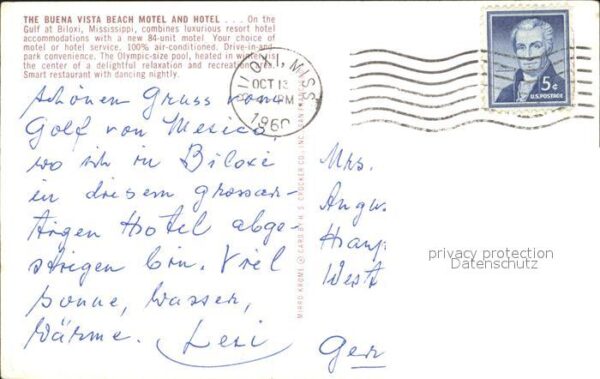 THE BUENA VISTA BEACH MOTEL AND HOTEL . . . On the
Gulf at Biloxi, Mississippi, combines luxurious resort hotel
accommodations with a new 84-unit motel. Your choice of
motel or hotel service. 100% air-conditioned. Drive-in-and-
park convenience. The Olympic-size pool, heated in winter, is
the center of a delightful relaxation and recreation area.
Smart restaurant with dancing nightly.
BILOXI, MISS.
OCT 13
PM
1960
5¢
U.S. POSTAGE
Schönen Gruss vom
Golf von Mexico,
wo ich in Biloxi
in diesem grossar-
tigen Hotel abge-
stiegen bin. Viel
Sonne, Wasser,
Wärme.
MIRRO KROME ® CARD BY H. S. CROCKER CO., INC., SAN
Mrs.
Angus
Haup
West
Ger
privacy protection
Datenschutz